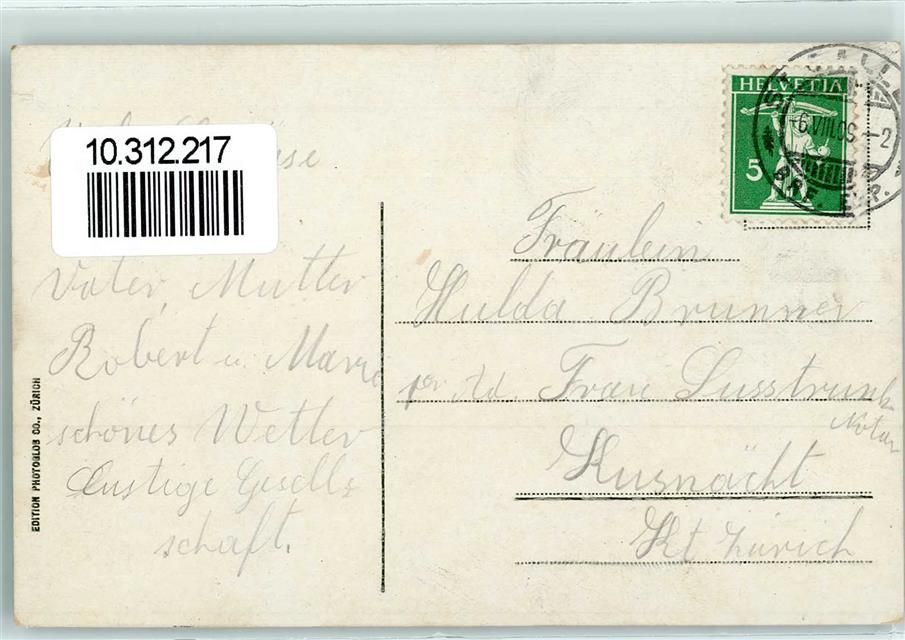 10.312.217
Vater, Mutter
Robert u. Marie
schönes Wetter
Lustige Gesell=
schaft.
EDITION PHOTOGLOB CO., ZÜRICH
HELVETIA
5
6.VIII.09.-2
BRF. EXP.
Fräulein
Hulda Brunner
per Ad. Frau Lusstrunk
Notar
Kusnacht
Kt Zürich